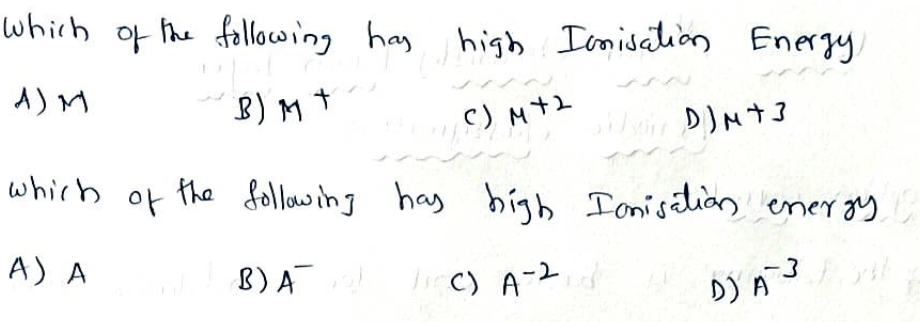 Which of the following has high Ionisation Energy
A) M B) M+ C) M+2 D) M+3
which of the following has high Ionisation energy
A) A B) A- C) A-2 D) A-3